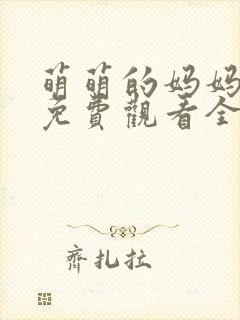 萌萌的妈妈
免費觀看全
齊扎拉